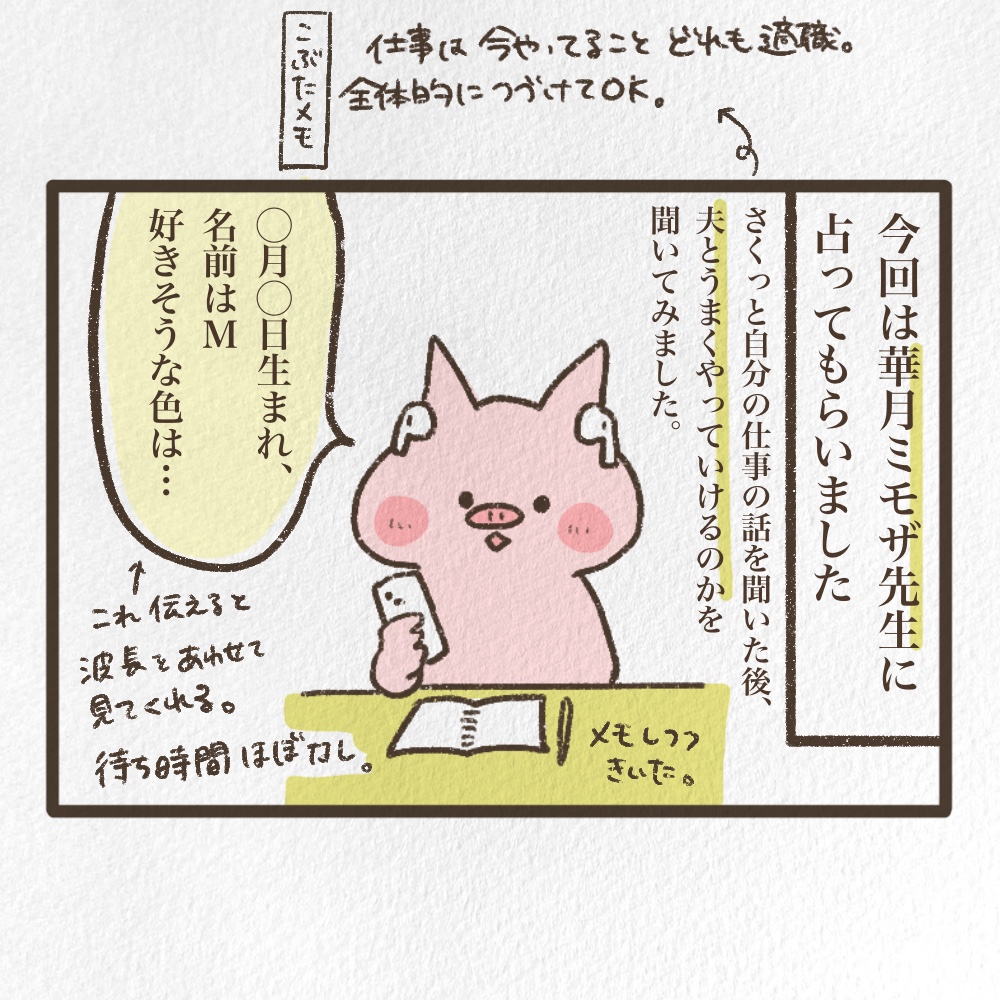 こぶたメモ
仕事は今やってることどれも適職。
全体的につづけてOK。
今回は華月ミモザ先生に
占ってもらいました
さくっと自分の仕事の話を聞いた後、
夫とうまくやっていけるのかを
聞いてみました。
〇月〇日生まれ、
名前はM
好きそうな色は…
これ伝えると
波長をあわせて
見てくれる。
待ち時間ほぼなし。
メモしつつ
きいた。